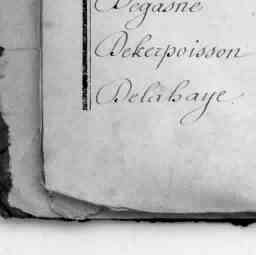 Degasne
Dekerpoisson
Delahaye.